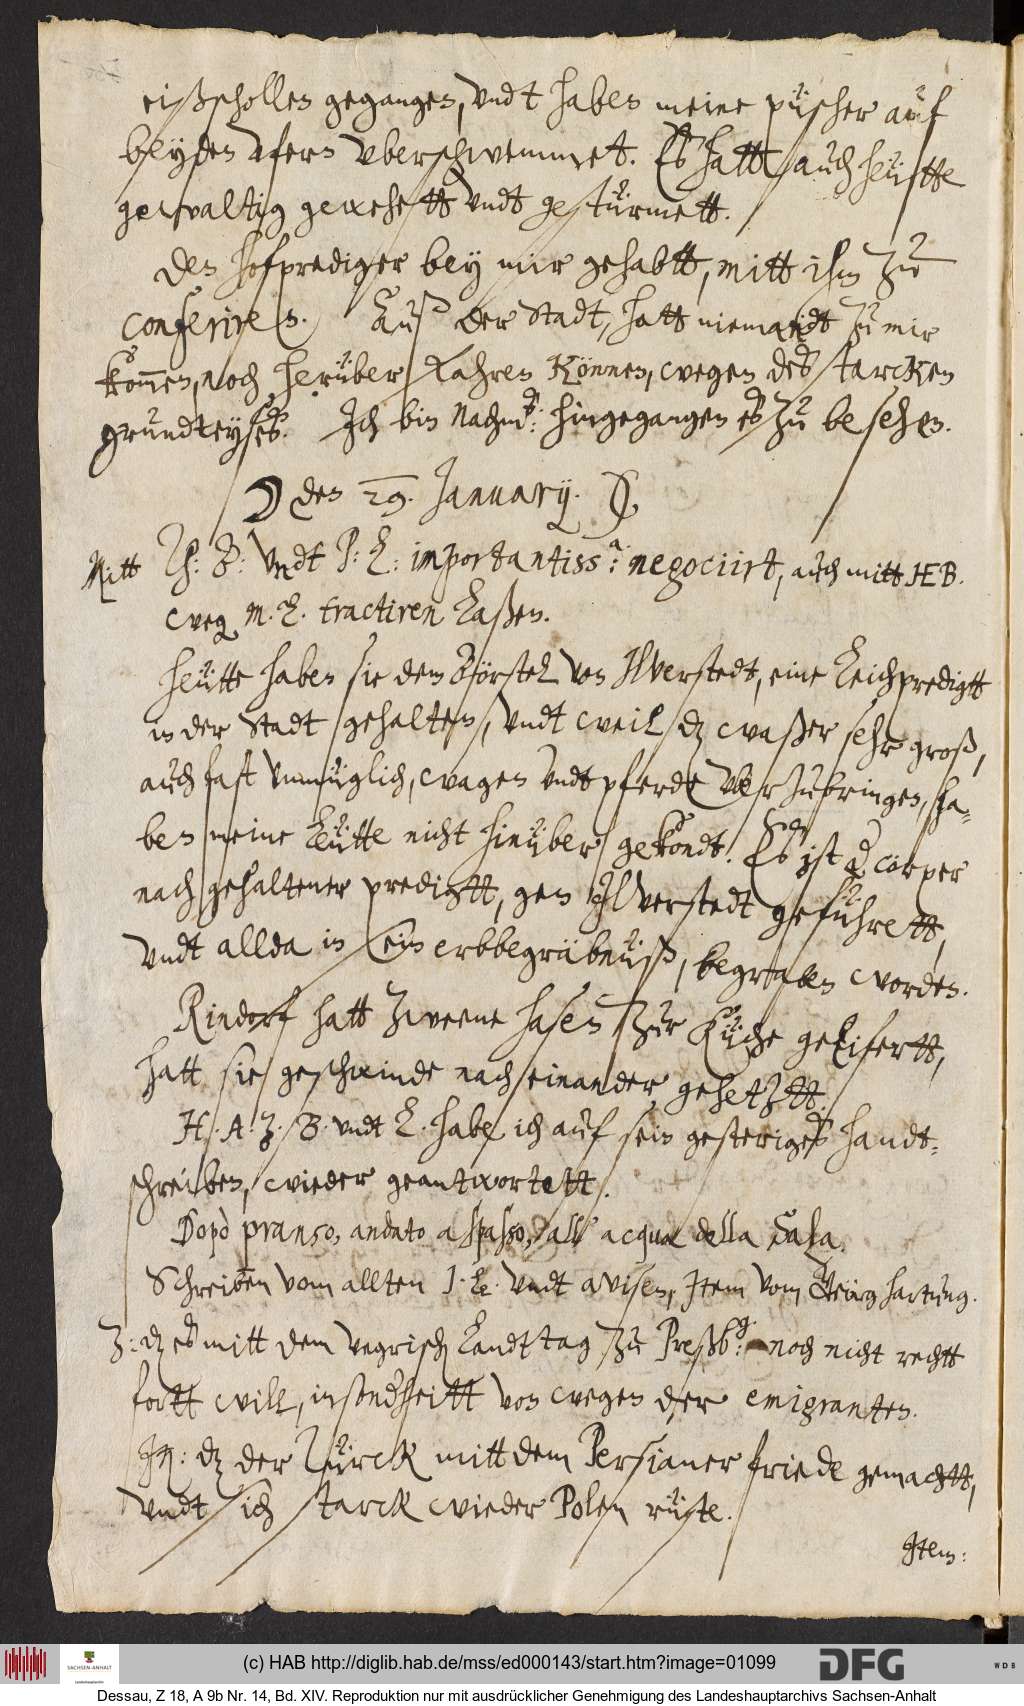 eißschollen gegangen, undt haben meine püscher auf
beyden ufern uberschwemmet. Es hatt auch heütte
gewaltig gewehett undt gestürmett.
Den hofprediger bey mir gehabtt, mitt ihm zu
conferiren. Auß der Stadt, hatt niemandt zu mir
kommen, noch herüber fahren können, wegen des starcken
grundteyses. Ich bin Nachm: hingegangen es zu besehen.
☽ den 29. January.
Mitt Th: B: Undt P: L: importantiss:a negociirt, auch mitt HEB.
weg M. L. tractiren laßen.
Heütte haben sie dem Börstel von Ilverstedt, eine Leichpredigtt
in der Stadt gehalten, undt weil dz waßer sehr groß,
auch fast unmüglich, wagen undt pferde uberzubringen, ha=
ben meine Leütte nicht hinüber gekondt. Es ist der cörper
nach gehaltener predigtt, gen Ilverstedt geführett,
undt allda in sein erbbegräbnüß, begraben worden.
Rindorf hatt zweene hasen zur Küche gelifertt,
hatt sie geschwinde nach einander gehetztt.
H. A. Z. B. undt L. habe ich auf sein gesteriges handt=
schreiben, wieder geantwortett.
Dopò pranso, andato a spasso, all' acqua della Sala.
Schreiben vom allten J. L. undt avisen, Item vom Georg Hartung.
Z: dz es mitt dem Ungrisch Landttag zu Preßb:g noch nicht rechtt
fortt will, insonderheitt von wegen der emigranten.
It: dz der Türck mitt dem Persianer friede gemachtt,
undt sich starck wieder Polen rüste.
Item:
(c) HAB http://diglib.hab.de/mss/ed000143/start.htm?image=01099
SACHSEN-ANHALT
DFG
WDB
Dessau, Z 18, A 9b Nr. 14, Bd. XIV. Reproduktion nur mit ausdrücklicher Genehmigung des Landeshauptarchivs Sachsen-Anhalt